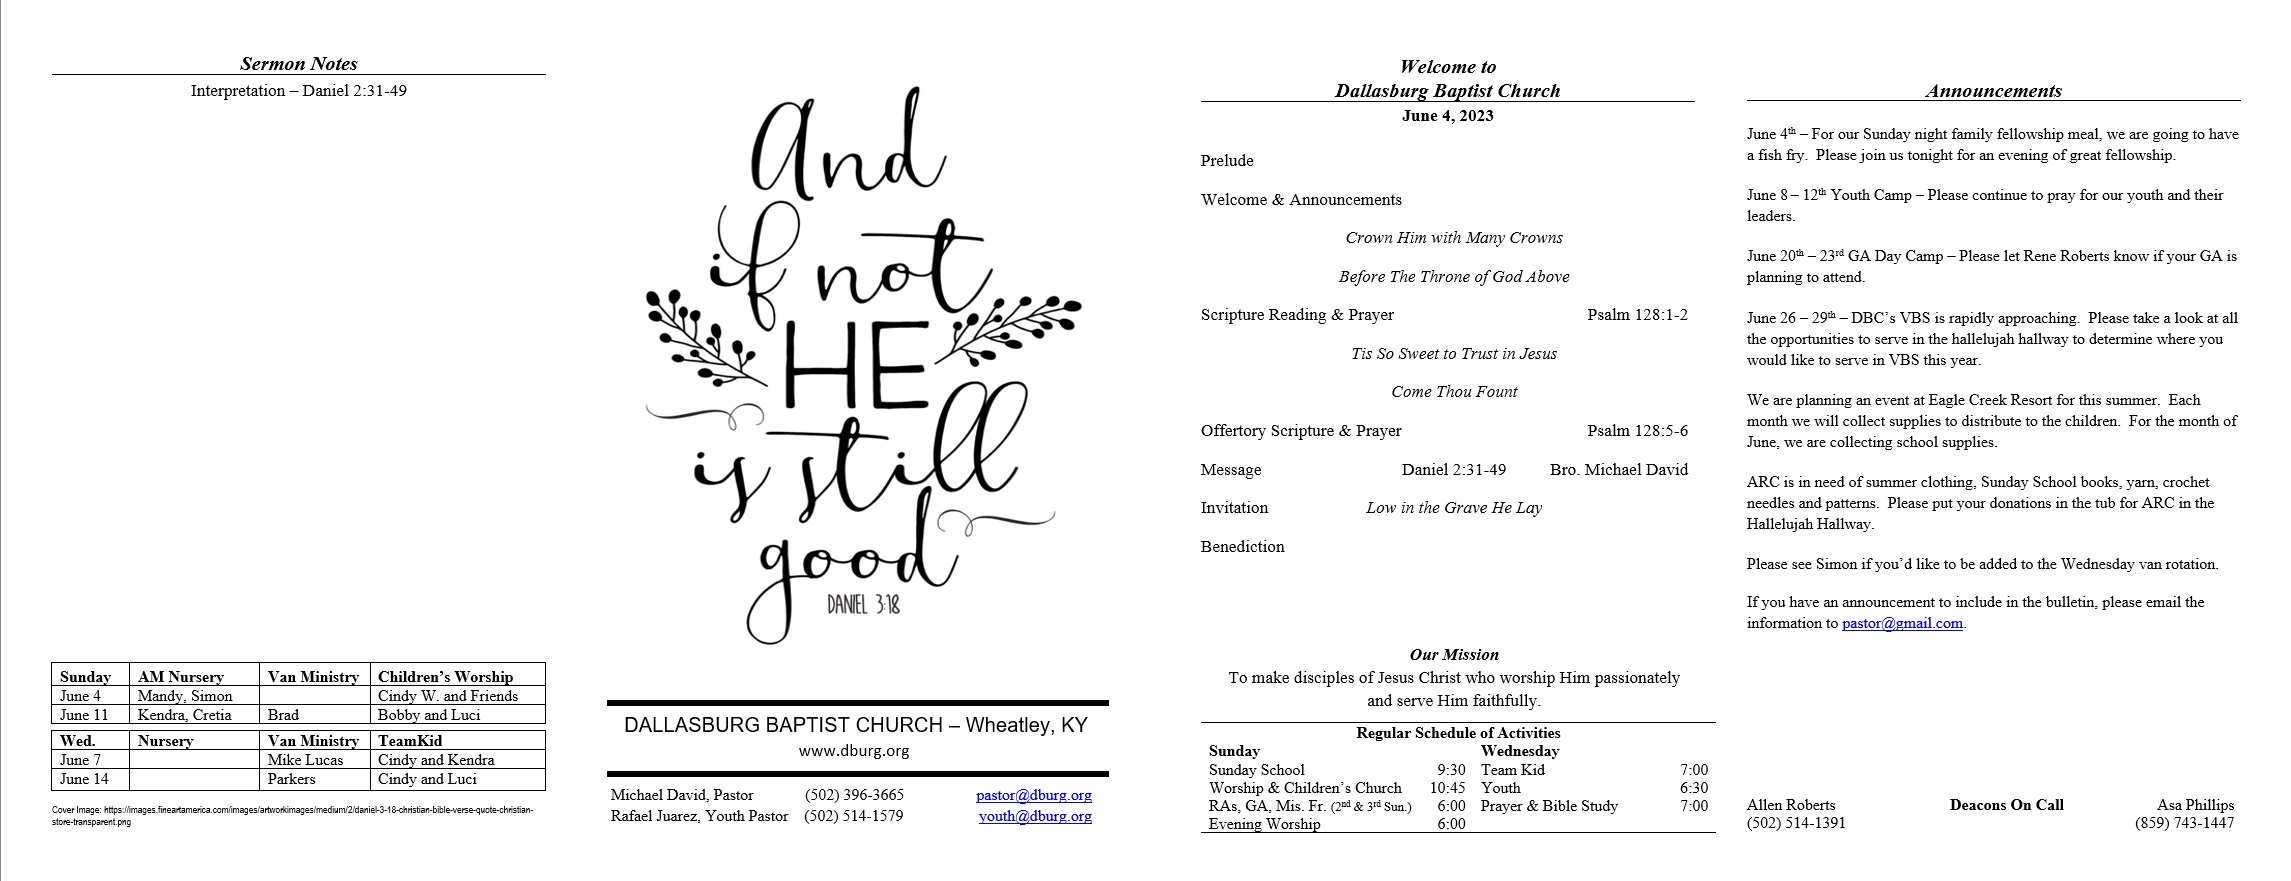 Sermon Notes
Interpretation – Daniel 2:31-49
Sunday AM Nursery Van Ministry Children's Worship
June 4 Mandy, Simon Cindy W. and Friends
June 11 Kendra, Cretia Brad Bobby and Luci
Wed. Nursery Van Ministry TeamKid
June 7 Mike Lucas Cindy and Kendra
June 14 Parkers Cindy and Luci
Cover Image: https://images.fineartamerica.com/images/artworkimages/medium/2/daniel-3-18-christian-bible-verse-quote-christian-
store-transparent.png
And
if not
HE
is still
good
DANIEL 3:18
DALLASBURG BAPTIST CHURCH – Wheatley, KY
www.dburg.org
Michael David, Pastor (502) 396-3665 pastor@dburg.org
Rafael Juarez, Youth Pastor (502) 514-1579 youth@dburg.org
Welcome to
Dallasburg Baptist Church
June 4, 2023
Prelude
Welcome & Announcements
Crown Him with Many Crowns
Before The Throne of God Above
Scripture Reading & Prayer Psalm 128:1-2
Tis So Sweet to Trust in Jesus
Come Thou Fount
Offertory Scripture & Prayer Psalm 128:5-6
Message Daniel 2:31-49 Bro. Michael David
Invitation Low in the Grave He Lay
Benediction
Our Mission
To make disciples of Jesus Christ who worship Him passionately
and serve Him faithfully.
Regular Schedule of Activities
Sunday Wednesday
Sunday School 9:30 Team Kid 7:00
Worship & Children's Church 10:45 Youth 6:30
RAs, GA, Mis. Fr. (2nd & 3rd Sun.) 6:00 Prayer & Bible Study 7:00
Evening Worship 6:00
Announcements
June 4th – For our Sunday night family fellowship meal, we are going to have
a fish fry. Please join us tonight for an evening of great fellowship.
June 8 – 12th Youth Camp – Please continue to pray for our youth and their
leaders.
June 20th – 23rd GA Day Camp – Please let Rene Roberts know if your GA is
planning to attend.
June 26 – 29th – DBC's VBS is rapidly approaching. Please take a look at all
the opportunities to serve in the hallelujah hallway to determine where you
would like to serve in VBS this year.
We are planning an event at Eagle Creek Resort for this summer. Each
month we will collect supplies to distribute to the children. For the month of
June, we are collecting school supplies.
ARC is in need of summer clothing, Sunday School books, yarn, crochet
needles and patterns. Please put your donations in the tub for ARC in the
Hallelujah Hallway.
Please see Simon if you'd like to be added to the Wednesday van rotation.
If you have an announcement to include in the bulletin, please email the
information to pastor@gmail.com.
Allen Roberts Deacons On Call Asa Phillips
(502) 514-1391 (859) 743-1447